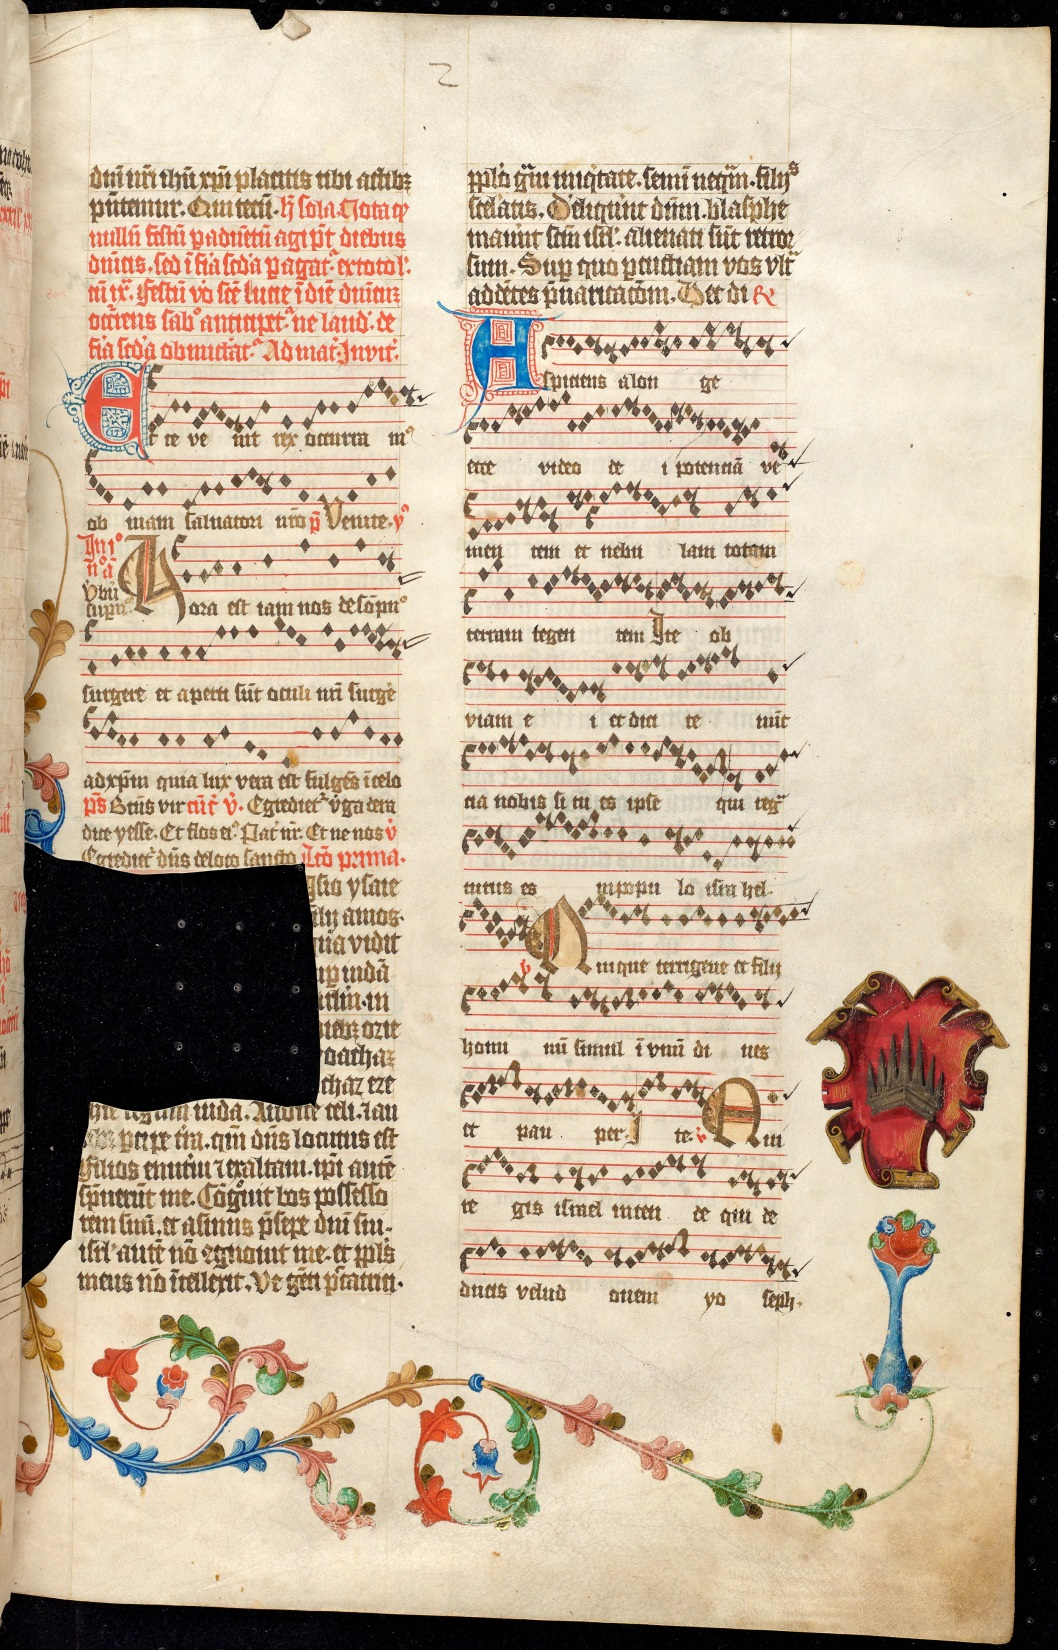 2
dnī nr̄i ihū xpī placitis tibi actibꝫ
pn̄temur. Qui tecū. hͥ sola. Nota qͥ
nullū festū ꝑ aduētū agi pt̄ diebus
dnīcis. sed ī fīa scd̄a ꝑagat᷑
festū vͦ scē lucie ī die dnīcaꝫ
occr̄ens sabͦ anticipet᷑ ne laud. de
fīa scd̄a obmictat᷑ Ad mat̄. Inuit̄.
Ecce ve nit rex occurra mͦ
ob uiam saluatori nrō p̄ Venite. ymͦ
Hora est iam nos de sōpnͦ
surgere et aperti sūt oculi nrī surgē
ad xpm̄ quia lux vera est fulgēs ī celo
ps̄ Bt̄us vir cūt̄ v̄. Egrediet᷑ v̄ga de ra
dice yesse. Et flos eͥ. Pat̄ nr̄. Et ne nos v̄
Egrediet᷑ dn̄s de loco sancto Lc̄o prima.
sio ysaie
lij amos.
vidit
iudā
ozie
ioathaꝫ
chaz eze
hie regum iuda. Audite celi. ⁊ au
ꝑcipe tr̄a. qm̄ dn̄s locutus est
filios enutriui ⁊ exaltaui. ipī autē
spreuerūt me. Cōgͦuit bos possesso
rem suū. et asinus p̄sepe dnī sui.
isrl̄ autē nō cgnouit me. et ppl̄s
meus nō ītellexit. Ve gēti pc̄atrici.
ppl̄o gͣui iniqͥtate. semī neqͣm. filijˢ
sceleratis. Deliquer̄unt dnm̄. blasphe
mauer̄unt scm̄ isrl̄. alienati sūt retror
sum. Suꝑ quo ꝑcuciam vos vltͣ
addētes p̄uaricatōm. Hec di R̄
Aspiciens a lon ge
ecce video de i potenciā ve
nien tem et nebu lam totam
terram tegen tem Ite ob
viam e i et dici te nūc
cia nobis si tu es ipse qui regͣ
turus es in popu lo isra hel.
v̄ Quique terrigene et filij
homi nū simul ī vnū di ues
et pau per Ite. v̄ Qui
re gis israel inten de qui de
ducis velud ouem yo seph.